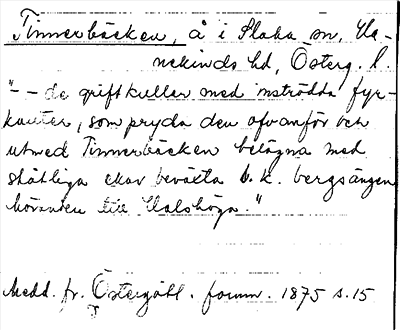 Tinnerbäcken, å i Slaka sn, Ha-
nekinds hd, Österg. l.
"- - de griftkullar med inströdda fyr-
kanter, som pryda den ofvanför och
utmed Tinnerbäcken belägna med
ståtliga ekar beväxta s. k. bergsängen
hörande till Halshöga."
Medd. fr. Östergötl. fornm. 1875 s. 15